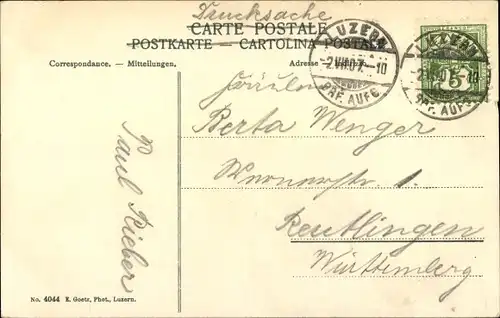 Drucksache
CARTE POSTALE
POSTKARTE — CARTOLINA POSTALE
Correspondance. — Mitteilungen.
Adresse
LUZERN
2.VII.07.—10
BRF. AUFG.
LUZERN
BRF. AUFG.
5
Fräulein
Berta Wenger
1.
Reutlingen
Württemberg
Paul Rieber
No. 4044 E. Goetz, Phot., Luzern.